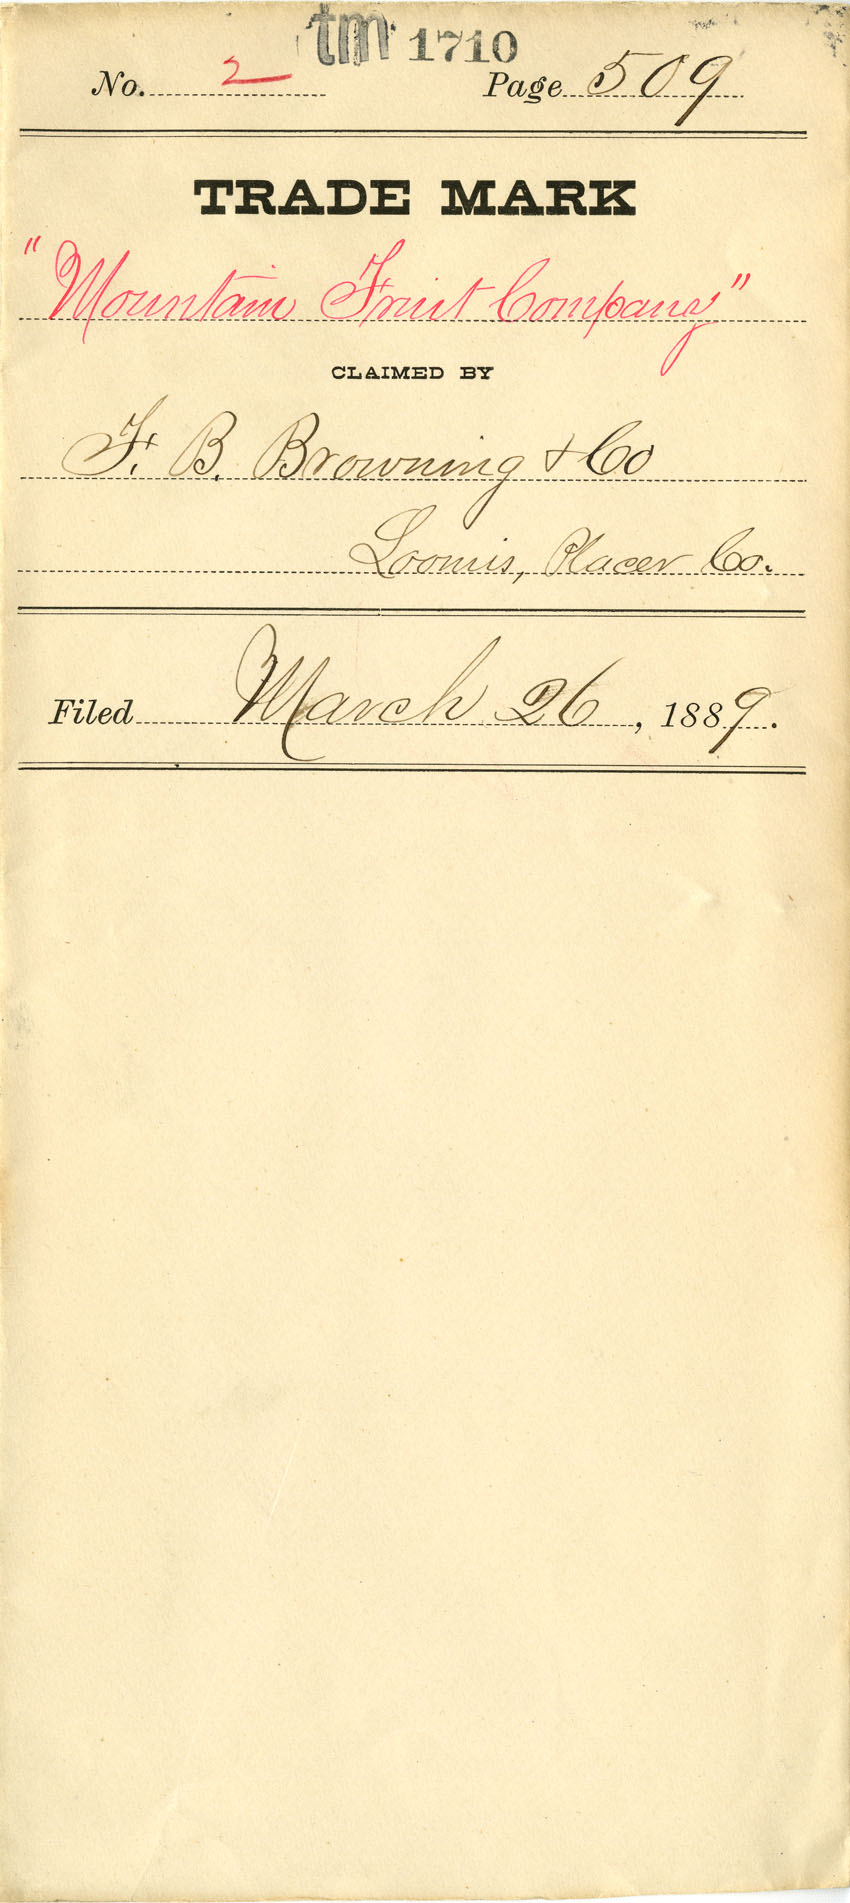 tm 1710
No. 2 Page 509
TRADE MARK
"Mountain Fruit Company"
CLAIMED BY
F. B. Browning & Co
Loomis, Placer Co.
Filed March 26, 1889.